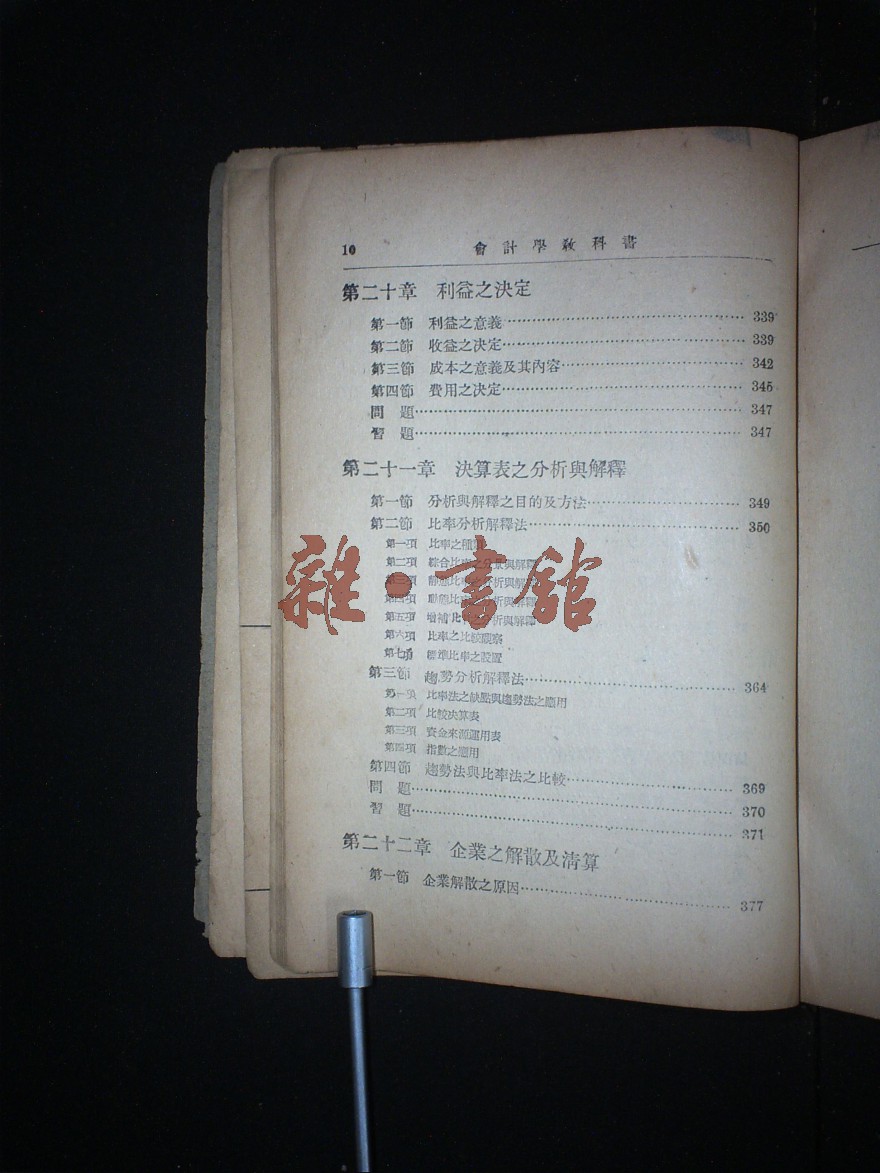 10 會計學教科書
第二十章 利益之決定
第一節 利益之意義 339
第二節 收益之決定 339
第三節 成本之意義及其內容 342
第四節 費用之決定 345
問題 347
習題 347
第二十一章 決算表之分析與解釋
第一節 分析與解釋之目的及方法 349
第二節 比率分析解釋法 350
第一項 比率之種
第二項 綜合比率之分 與解釋
第三項 靜態比 析與解
第四項 動態比 析與解釋
第五項 增補比 析與解釋
第六項 比率之比較觀察
第七 標準比率之設置
第三節 趨勢分析解釋法 364
第一項 比率法之缺點與趨勢法之應用
第二項 比較決算表
第三項 資金來源運用表
第四項 指數之應用
第四節 趨勢法與比率法之比較 369
問題 370
習題 371
第二十二章 企業之解散及清算
第一節 企業解散之原因 377
雜·書館